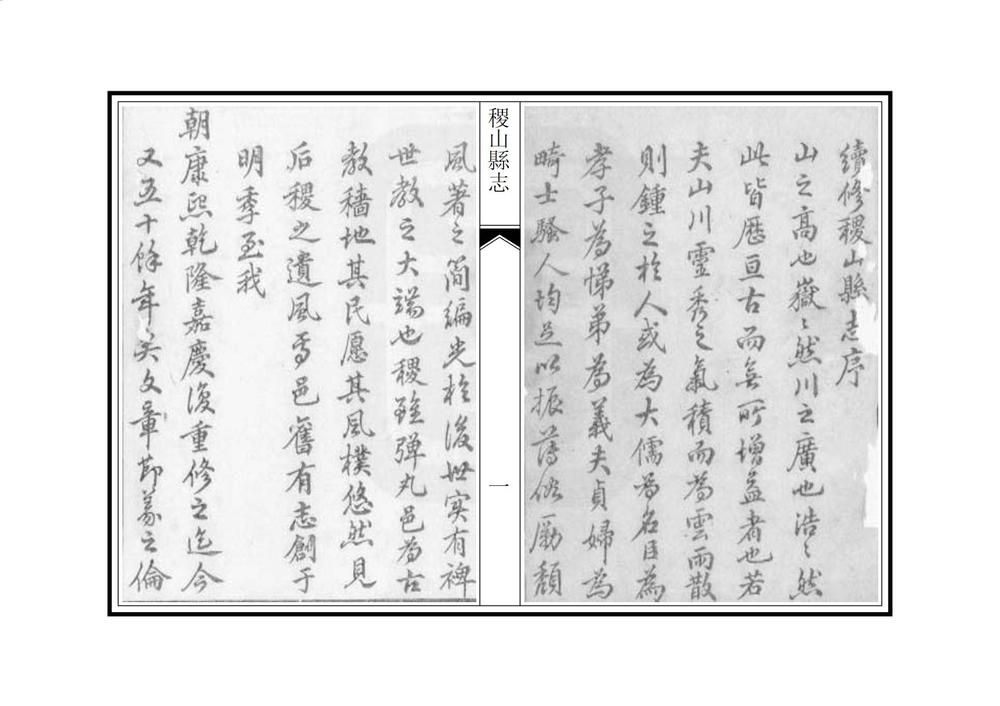 續修稷山縣志序
山之高也嶽〻然川之廣也浩〻然
此皆歷亘古而無所增益者也若
夫山川靈秀之氣積而為雲雨散
則鍾之於人或為大儒為名臣為
孝子為悌弟為義夫貞婦為
畸士騷人均足以振薄俗勵頹
稷山縣志
一
風著之簡編光於後世实有裨
世教之大端也稷雖彈丸邑為古
教穡地其民愿其風樸悠然見
后稷之遺風焉邑舊有志創于
明季至我
朝康熙乾隆嘉慶復重修之迄今
又五十餘年矣文章節義之倫